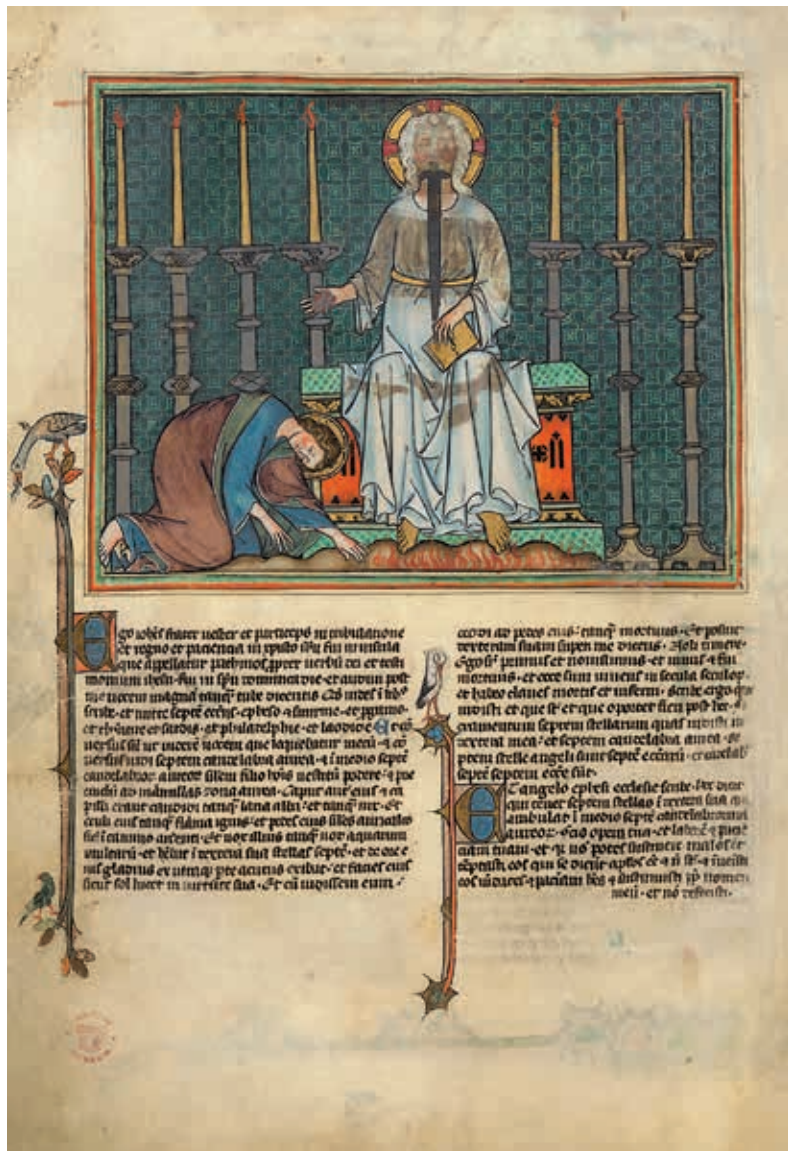 Ego ioh̄es frater uester et particeps in tribulatione
et regno et paciencia in xp̄isto ih̄u fui in insula
que appellatur pathmos ꝓpter uerbū dei et testi
monium ihesu · fui in sp̄u dominica die · et audiui post
me uocem magnā tanq̄ tube dicentis Qd̄ uides ī libº
scribe · et mitte septē ecc̄lis · epheso ⁊ smirne · et ꝑgamo ·
et thyatire et sardis · et philadelphie · et laodicie Et cō
uersus sū ut uiderē uocem que loquebatur mecū · ⁊ cō
uersus uidi septem candelabra aurea · ⁊ ī medio septē
candelabroꝝ aureoꝝ silem filio hōis uestitū podere · ⁊ pre
cinctū ad mamillas zona aurea · Caput aut̄ eius ⁊ ca
pilli erant candidi tanq̄ lana alba · et tanq̄ nix · Et o
culi eius tanq̄ flāma ignis · et pedes eius siles auricalco
sic̄ ī camino ardenti · Et uox illius tanq̄ uox aquarum
multarū · et hēbat ī dextera sua stellas septē · et de ore e
ius gladius ex utraq̄ ꝑte acutus exibat · et facies eius
sicut sol lucet in uirtute sua · Et cū uidissem eum ·
cecidi ad pedes eius · tanq̄ mortuus · Et posuit
dexteram suam super me dicens · Noli timere ·
Ego sū primus et nouissimus · et uiuus ⁊ fui
mortuus · et ecce sum uiuens in secula seculoꝝ ·
et habeo claues mortis et inferni · scribe ergo que
uidisti · et que sūt et que oportet fieri post hec · sa
cramentum septem stellarum quas uidisti in
dextera mea · et septem candelabra aurea · Se
ptem stelle angeli sunt septē ecc̄arū · et candelab̄
septē septem ecc̄e sūt ·
Et angelo ephesi ecclesie scribe · hec dicit
qui tenet septem stellas ī dextera sua qui
ambulat ī medio septē candelabroꝝ
aureoꝝ · Scio opera tua · et laborē ⁊ pacie
ciam tuam · et q̄ nō potes sustinere malos et
tēptasti eos qui se dicūt aꝑlos eē ⁊ n̄ sūt · ⁊ īuenisti
eos mēdaces · ⁊ paciam hēs ⁊ sustinuisti ꝓp̄ nomen
meū · et nō defecisti ·